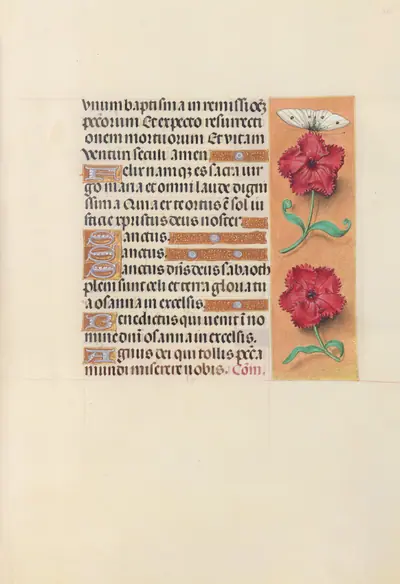 unum baptisma in remissioẽ
peccorum Et expecto resurrecti
onem mortuorum Et vitam
venturi seculi amen
Felix namqȝ es sacra vir
go maria et omni laude digni
ssima Quia ex te ortus ẽ sol iu
sticie xpristus deus noster
Sanctus
Sanctus
Sanctus dñs deus sabaoth
pleni sunt celi et terra gloria tu
a osanna in excelsis
Benedictus qui uenit ĩ no
mine dñi osanna in excelsis.
Agnus dei qui tollis pecã
mundi miserere nobis. Com̃.